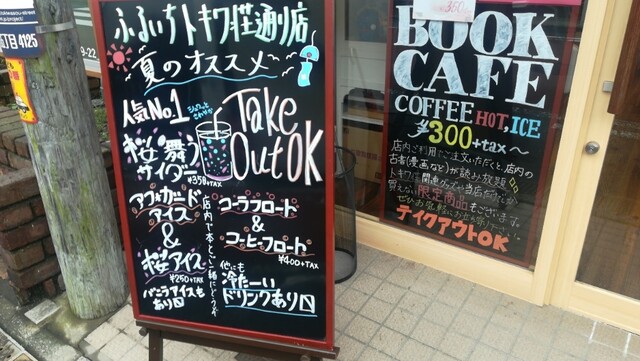 丁目4125
9-22
ふるいちトキワ荘通り店
夏のオススメ
人気No.1
桜舞う
サイダー
¥350+TAX
Take
Out OK
アフォガード
アイス
&
桜アイス
¥250+TAX
バニラアイスも
あり
店内で本と一緒にどうぞ
コーラフロート
&
コーヒーフロート
¥400+TAX
他にも
冷たーい
ドリンクあり
BOOK
CAFE
COFFEE HOT, ICE
¥300+tax〜
店内ご利用でご注文いただくと、店内の
古書(漫画など)が読み放題
トキワ荘関連グッズや当店
買えない限定商品もございます。
ぜひお気軽に
テイクアウトOK